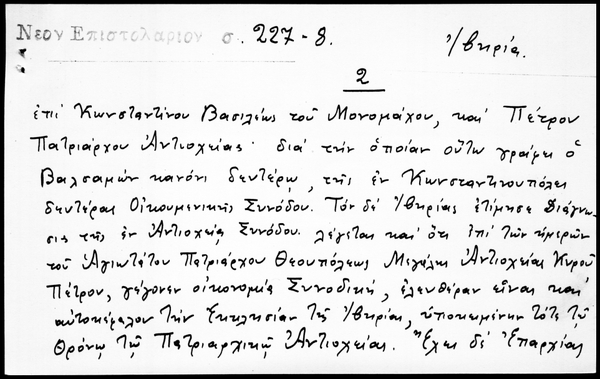 Νεον Επιστολαριον σ. 227-8.
Ἰβηρία.
2
ἐπί Κωνσταντίνου Βασιλέως τοῦ Μονομάχου, καί Πέτρου
Πατριάρχου Ἀντιοχείας· διά τήν ὁποίαν οὕτω γράφει ὁ
Βαλσαμών κανόνι δευτέρῳ, τῆς ἐν Κωνσταντινουπόλει
δευτέρας Οἰκουμενικῆς Συνόδου. Τόν δέ Ἰβηρίας ἐτίμησε Διάγνω-
σις τῆς ἐν Ἀντιοχείᾳ Συνόδου. λέγεται καί ὅτι ἐπί τῶν ἡμερῶν
τοῦ Ἁγιωτάτου Πατριάρχου Θεουπόλεως Μεγάλης Ἀντιοχείας Κυροῦ
Πέτρου, γέγονεν οἰκονομία Συνοδική, ἐλευθέραν εἶναι καί
αὐτοκέφαλον τήν Ἐκκλησίαν τῆς Ἰβηρίας, ὑποκειμένην τότε τῷ
Θρόνῳ τῷ Πατριαρχικῷ Ἀντιοχείας. Ἔχει δέ Ἐπαρχίας